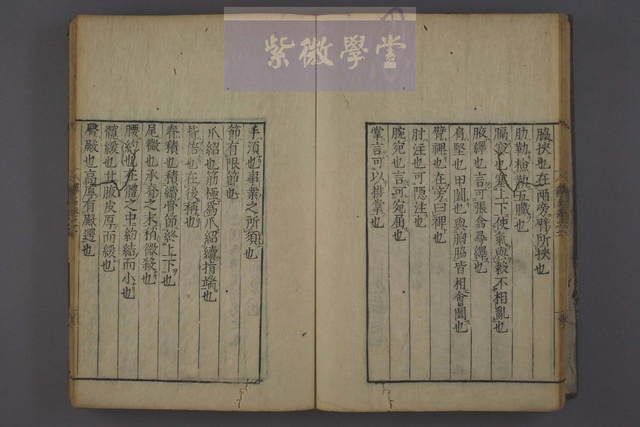 紫微學堂
脇挾也在兩旁臂所挾也
肋勒也檢勒五臟也
膈塞也塞上下使氣與穀不相亂也
腋繹也言可張翕尋繹也
肩堅也甲闔也與胸脇皆相會闔也
臂裨也在旁曰裨也
肘注也可隱注也
腕宛也言可宛屈也
掌言可以排掌也
手須也事業之所須也
節有限節也
爪紹也筋極為爪紹續指端也
背倍也在後稱也
脊積也積續骨節終上下也
尾微也承脊之末稍微殺也
腰約也在體之中約結而小也
髖緩也其腋皮厚而緩也
臀殿也高厚有殿遌也